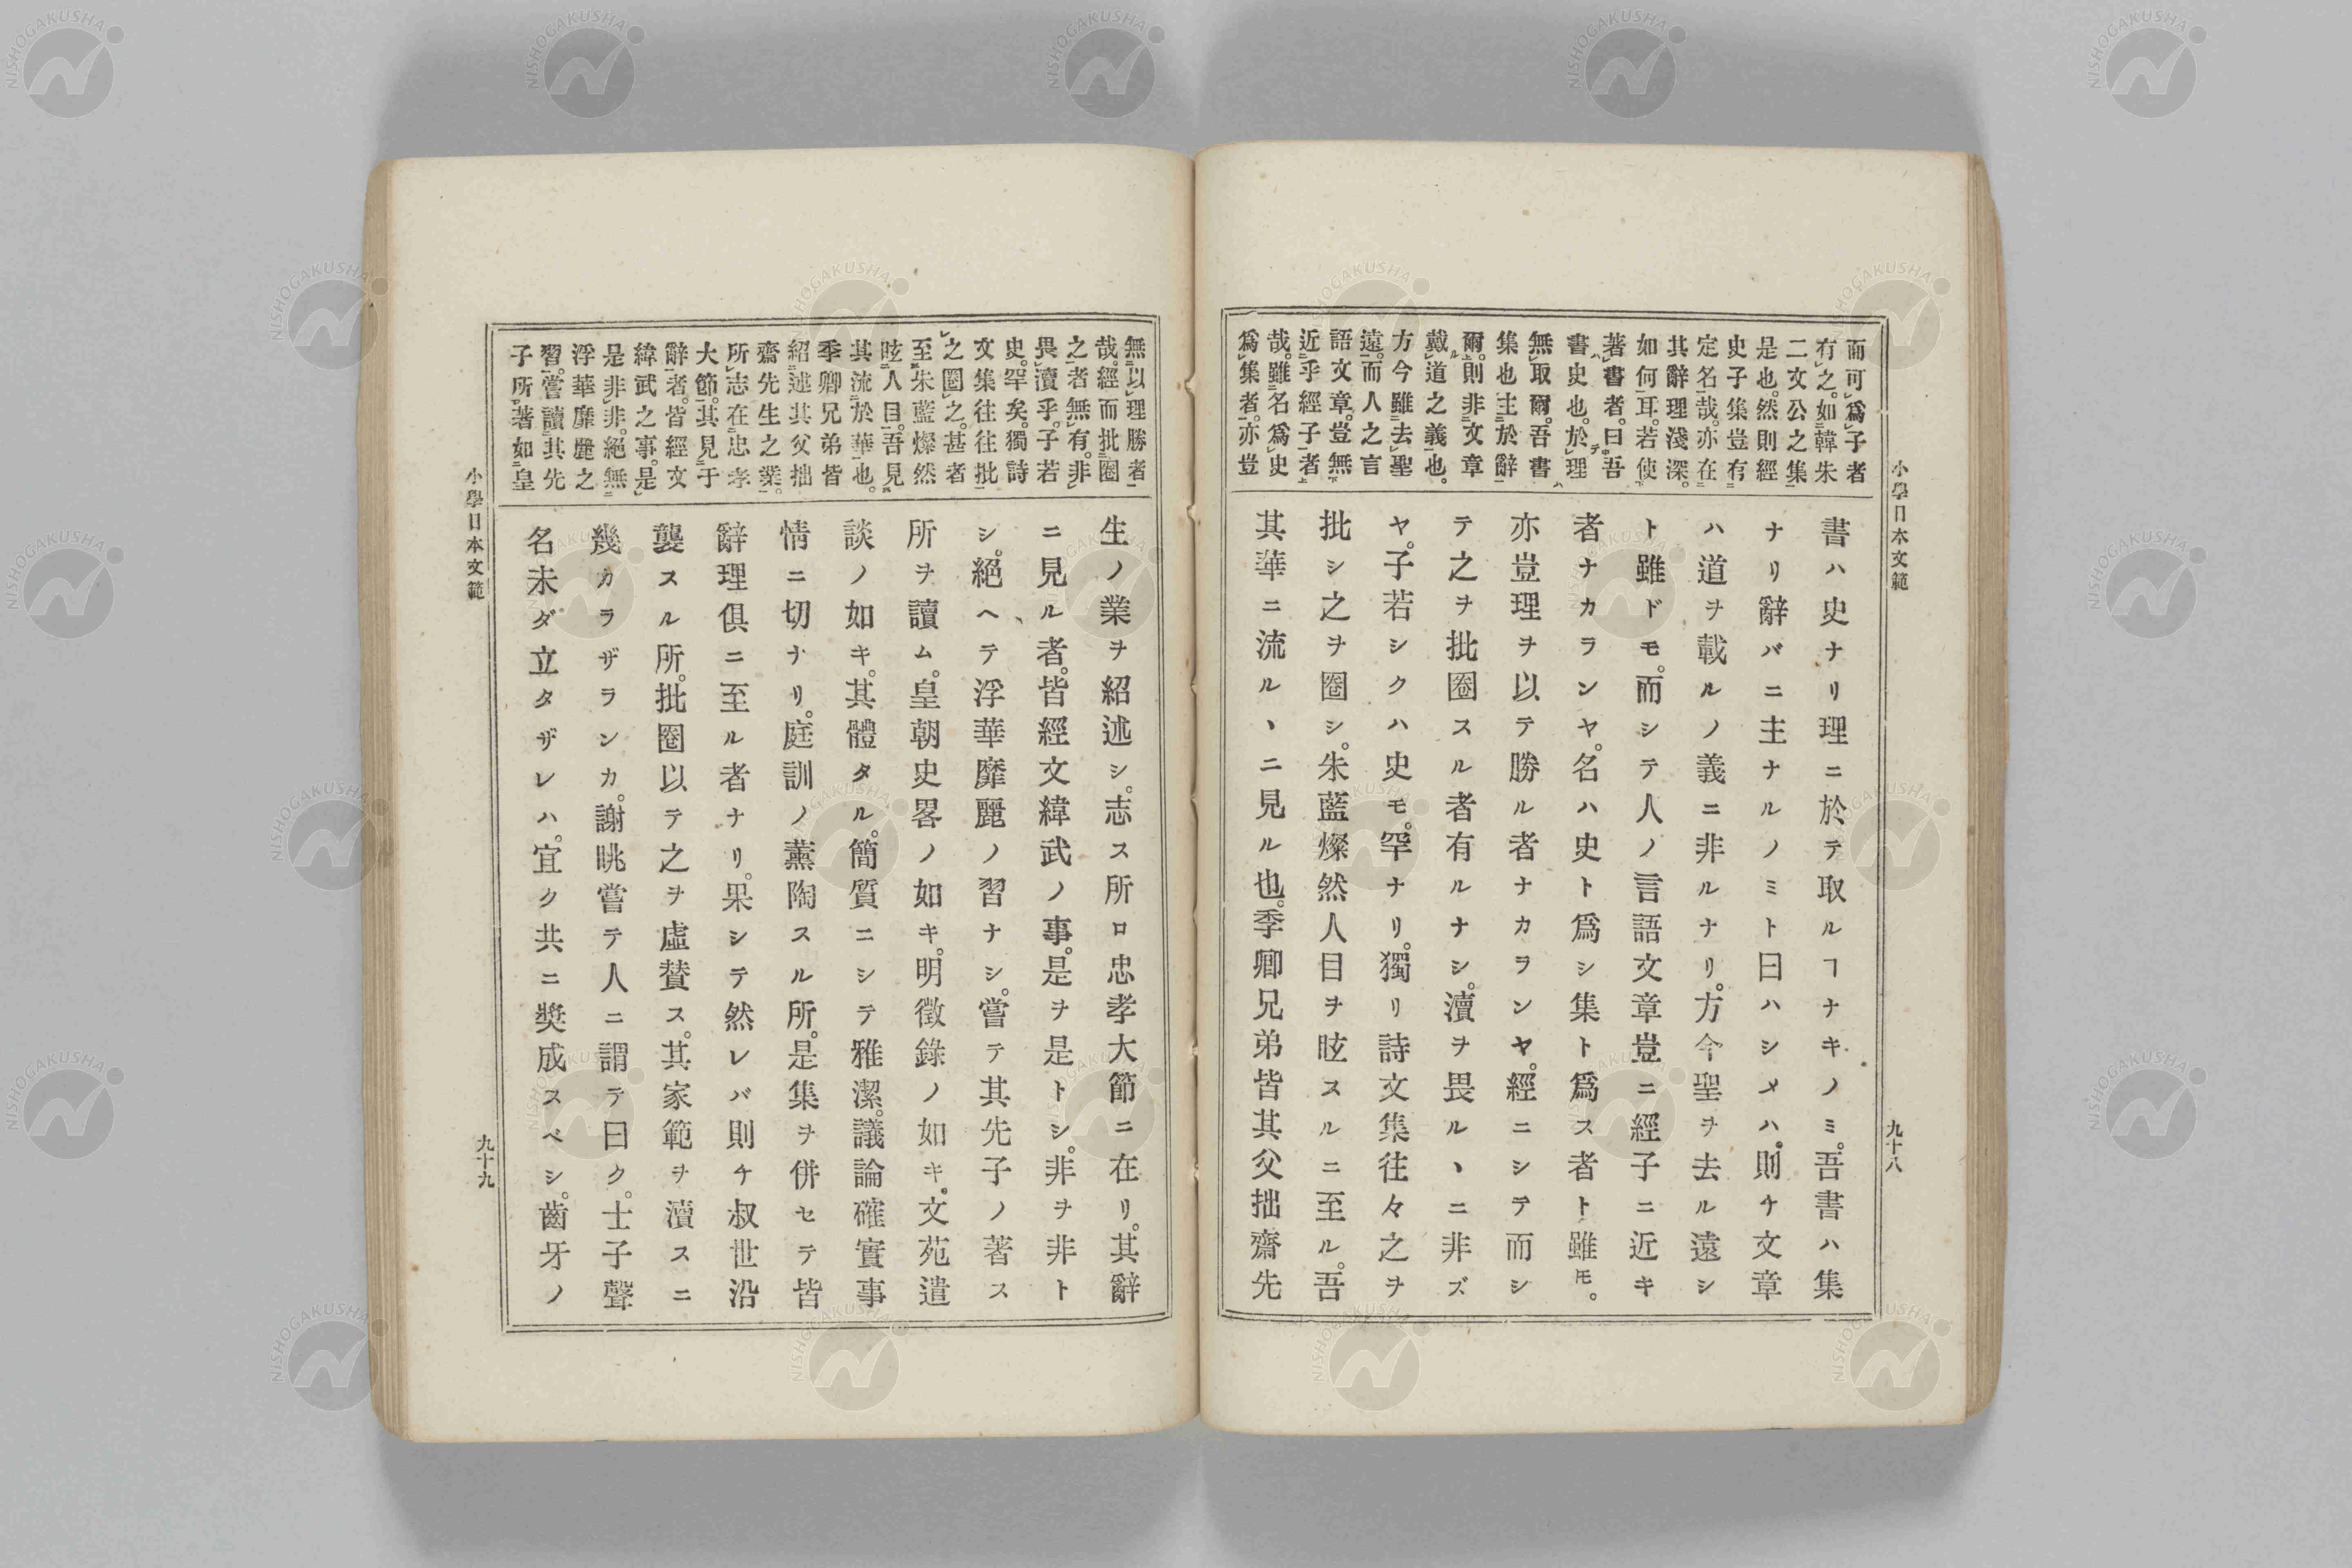 小學日本文範
九十八
而可爲子者
有之。如韓朱
二文公之集
是也。然則經
史子集豈有
定名哉。亦在
其辭理淺深。
如何耳。若使
著書者。曰吾
書史也。於理
無取爾。吾書
集也主於辭
爾。則非文章
戴道之義也。
方今雖去聖
遠。而人之言
語文章。豈無
近乎經子者
哉。雖名爲史
爲集者。亦豈
書ハ史ナリ理ニ於テ取ルヿナキノミ。吾書ハ集
ナリ辭バニ主ナルノミト曰ハシメハ。則チ文章
ハ道ヲ載ルノ義ニ非ルナリ。方今聖ヲ去ル遠シ
ト雖ドモ。而シテ人ノ言語文章豈ニ經子ニ近キ
者ナカランヤ。名ハ史ト爲シ集ト爲ス者ト雖モ。
亦豈理ヲ以テ勝ル者ナカランヤ。經ニシテ而シ
テ之ヲ批圈スル者有ルナシ。瀆ヲ畏ルヽニ非ズ
ヤ。子若シクハ史モ。罕ナリ。獨リ詩文集往々之ヲ
批シ之ヲ圈シ。朱藍燦然人目ヲ眩スルニ至ル。吾
其華ニ流ルヽニ見ル也。季卿兄弟皆其父拙齋先
無以理勝者
哉。經而批圈
之者無有。非
畏瀆乎。子若
史。罕矣。獨詩
文集往往批
之圈之。甚者
至朱藍燦然
眩人目。吾見
其流於華也。
季卿兄弟皆
紹述其父拙
齋先生之業。
所志在忠孝
大節。其見于
辭者。皆經文
緯武之事。是
是非非。絕無
浮華靡麗之
習。嘗讀其先
子所。著如皇
生ノ業ヲ紹述シ。志ス所ロ忠孝大節ニ在リ。其辭
ニ見ル者。皆經文緯武ノ事。是ヲ是トシ。非ヲ非ト
シ。絕ヘテ浮華靡麗ノ習ナシ。嘗テ其先子ノ著ス
所ヲ讀ム。皇朝史畧ノ如キ。明徵錄ノ如キ。文苑遺
談ノ如キ。其體タル。簡質ニシテ雅潔。議論確實事
情ニ切ナリ。庭訓ノ薰陶スル所。是集ヲ併セテ皆
辭理俱ニ至ル者ナリ。果シテ然レバ則チ叔世沿
襲スル所。批圈以テ之ヲ虛賛ス。其家範ヲ瀆スニ
幾カラザランカ。謝眺嘗テ人ニ謂テ曰ク。士子聲
名未ダ立タザレハ。宜ク共ニ奬成スベシ。齒牙ノ
小學日本文範
九十九